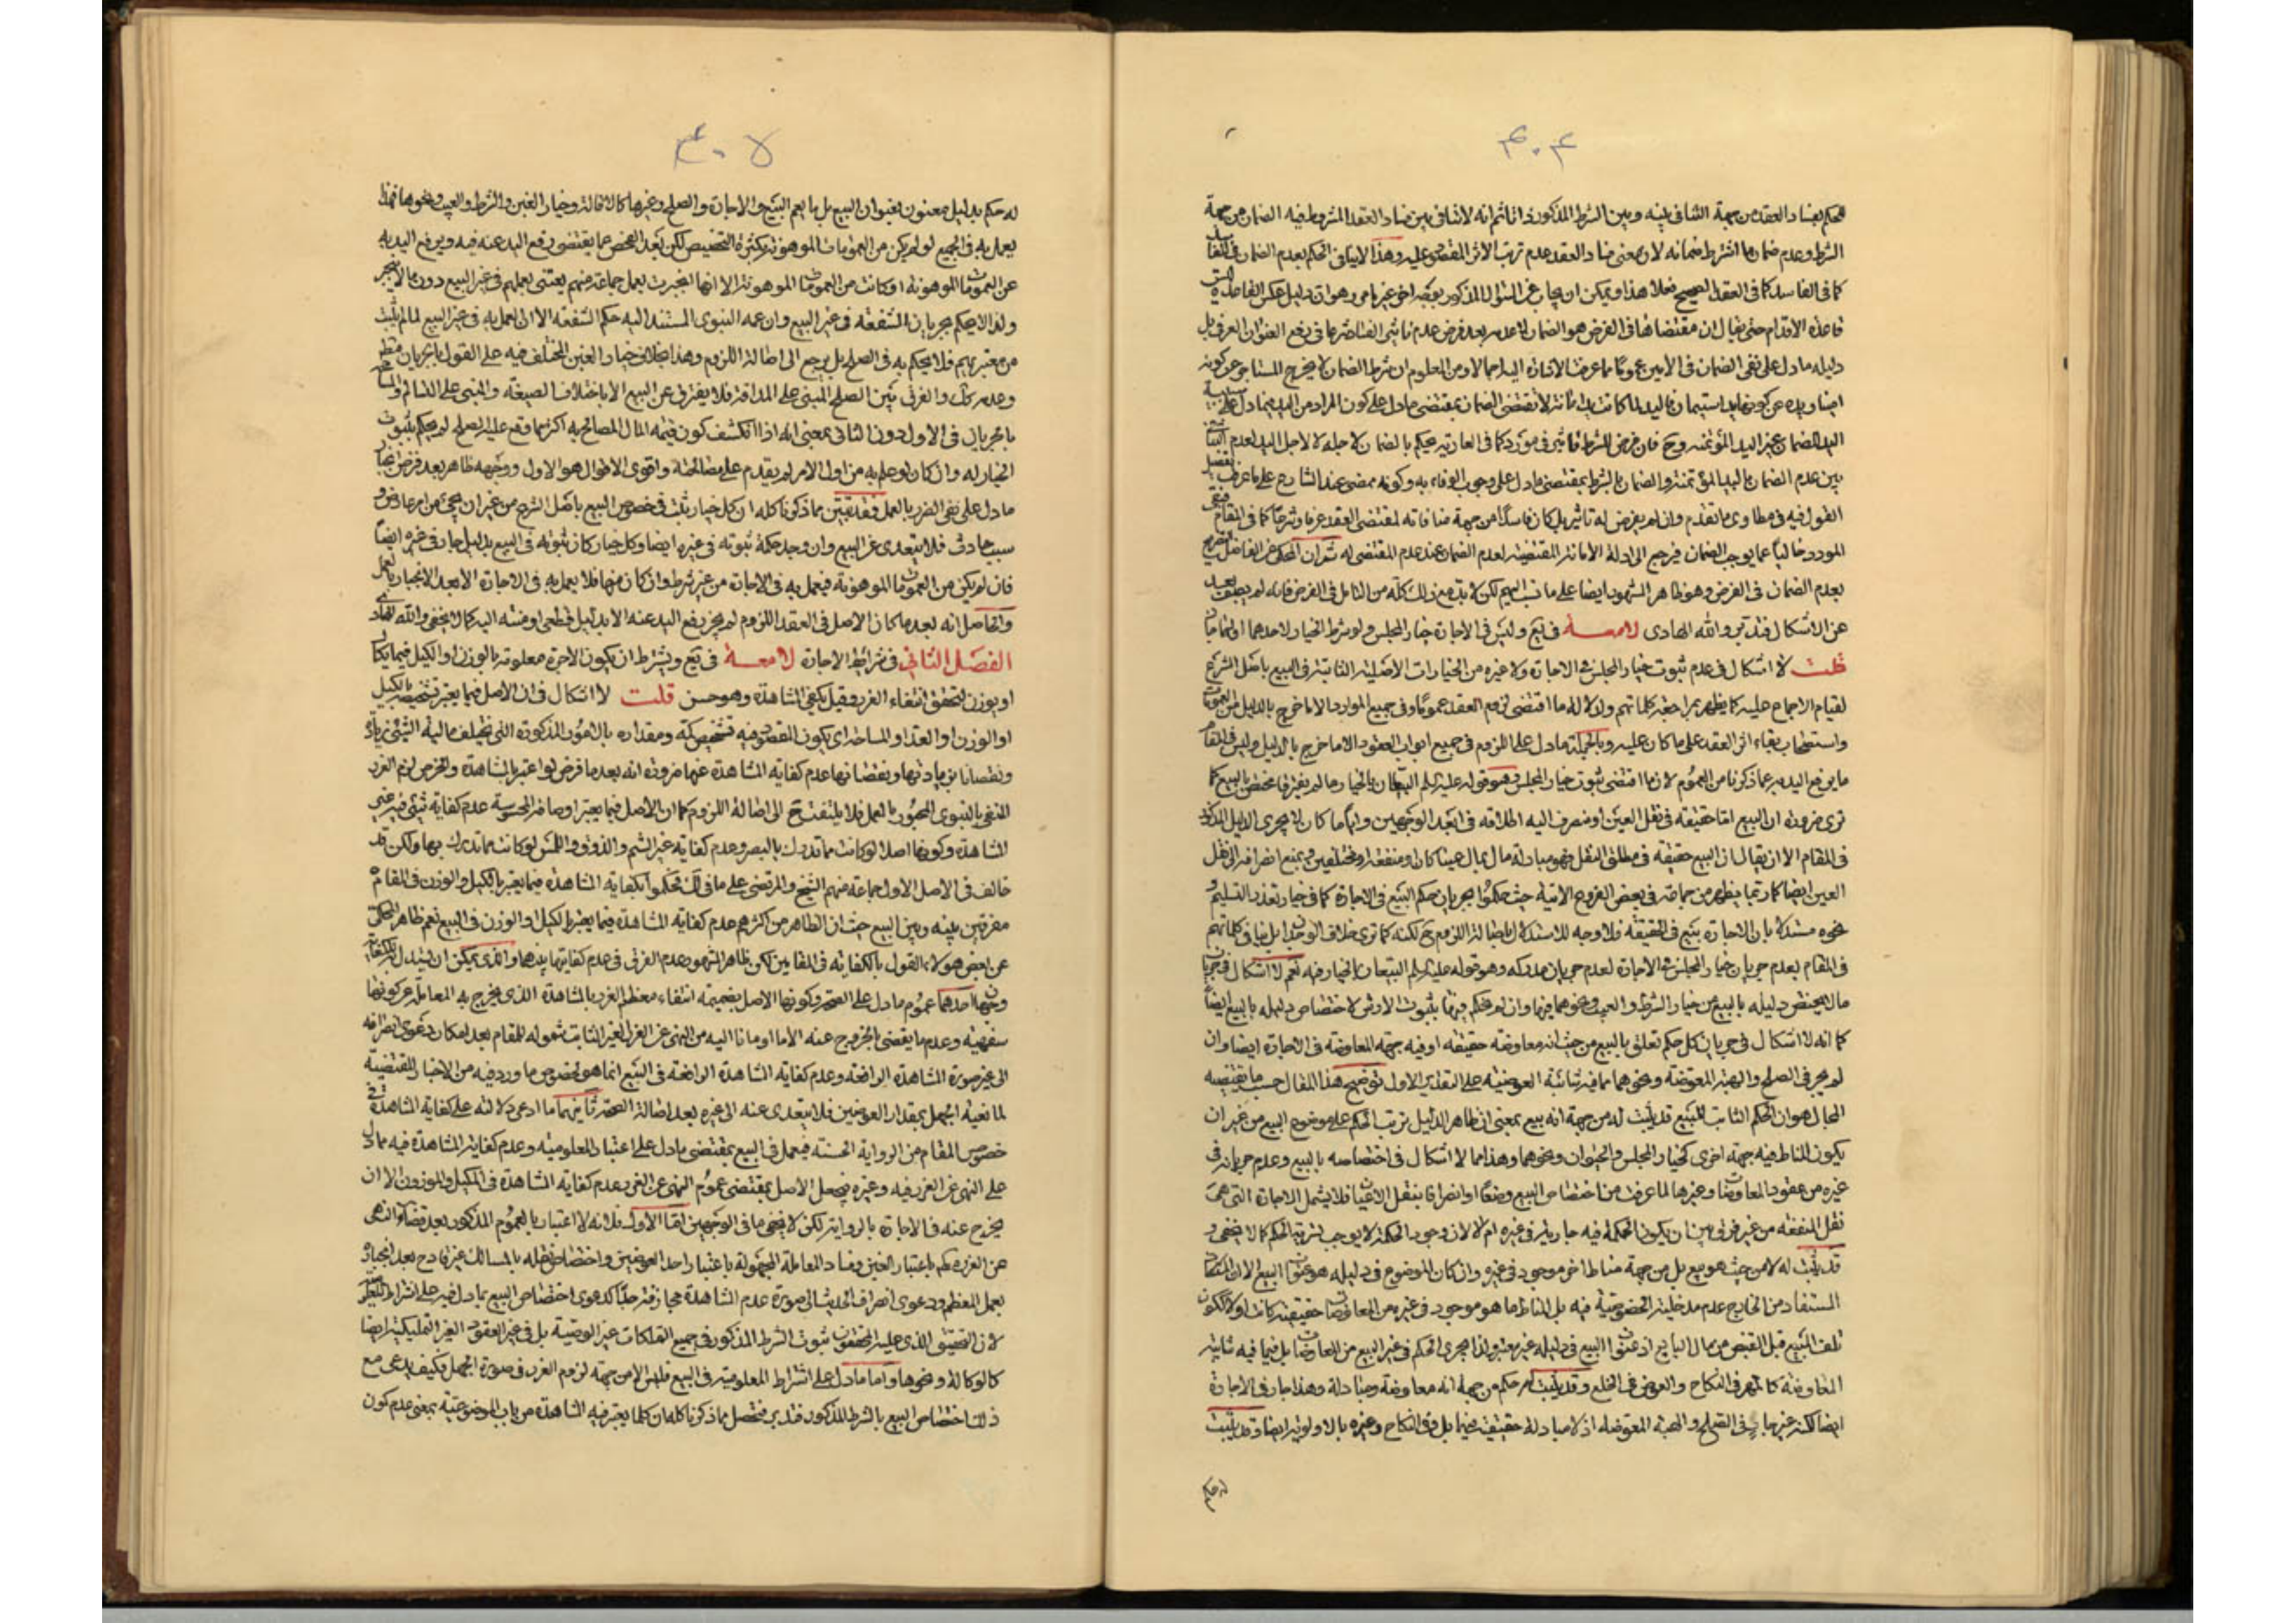 ۴۰۴
فحكم بفساد العقد من جهة التنافى بينه وبين الشرط المذكور ذاتا ثم انه لا تنافى بين فساد العقد المشروط فيه الضمان من جهة
الشرط وعدم ضمان ما اشترط ضمانه لان معنى فساد العقد عدم ترتب الاثر المقصود عليه وهذا لا ينافى الحكم بعدم الضمان فى الفاسد
كما فى الفاسد كما فى العقد الصحيح فعلا هذا ويمكن ان يجاب عن السؤال المذكور بوجه اخر غير ما مر وهو ان دليل عكس القاعدة ليست
قاعدة الاقدام حتى يقال ان مقتضاها فى الفرض هو الضمان لا عدمه بعد فرض عدم تاثير الفساد شرعا فى رفع العنوان العرفى بل
دليله ما دل على نفى الضمان فى الامين عموما مما عرفت الاشارة اليه اجمالا ومن المعلوم ان شرط الضمان لا يخرج المستاجر عن كونه
امينا ويده عن كونها يد استيمان فاليد لما كانت يد امانة لا تقتضى الضمان بمقتضى ما دل على كون المراد من اليد فيما دل على سببية
اليد للضمان غير اليد المؤتمنه وح فان فرض للشرط تاثير فى مورد كما فى العارية يحكم بالضمان لاجله لا لاجل اليد لعدم التنافى
بين عدم الضمان باليد المؤتمنة والضمان بالشرط بمقتضى ما دل على وجوب الوفاء به وكونه ممضى عند الشارع على ما عرفت تفصيل
القول فيه فى مطاوى ما تقدم وان لم يفرض له تاثير بل كان فاسدا من جهة منافاته لمقتضى العقد عرفا وشرعا كما فى المقام فيبقى
المورد خاليا عما يوجب الضمان فيرجع الى ادلة الامانة المقتضية لعدم الضمان عند عدم المقتضى له ثم ان المحكى عن الفاضل التصريح
بعدم الضمان فى الفرض وهو ظاهر المشهور ايضا على ما نسب اليهم لكن لا بد مع ذلك كله من التامل فى الفرض فانه لم يصف بعد
عن الاشكال فتدبر والله الهادى لامعة فى يع وليس فى الاجارة خيار المجلس ولو شرط الخيار لاحدهما او لهما جاز
قلت لا اشكال فى عدم ثبوت خيار المجلس فى الاجارة ولا غيره من الخيارات الاصلية الثابتة فى البيع باصل الشرع
لقيام الاجماع عليه كما يظهر بمراجعة كلماتهم ولدلالة ما اقتضى لزوم العقد عموما وفى جميع الموارد الا ما خرج بالدليل من العمومات
واستصحاب بقاء اثر العقد على ما كان عليه وبالجملة ما دل على اللزوم فى جميع ابواب العقود الا ما خرج بالدليل وليس فى المقام
ما يرفع اليد به عما ذكرنا من العموم لان ما اقتضى ثبوت خيار المجلس وهو قوله عليه السلم البيعان بالخيار ما لم يفترقا مختص بالبيع كما
ترى ضرورة ان البيع اما حقيقة فى نقل العين او منصرف اليه اطلاقه فى ابعد الوجهين وايا ما كان لا يجرى الدليل المذكور
فى المقام الا ان يقال ان البيع حقيقة فى مطلق النقل فهو مبادلة مال بمال عينا كان او منفعة او مختلفين ويمنع انصرافه الى نقل
العين ايضا كما ربما يظهر من جماعة فى بعض الفروع الاتية حيث حكموا بجريان حكم البيع فى الاجارة كما فى خيار تعذر التسليم و
نحوه مستدلا بان الاجارة بيع فى الحقيقة فلا وجه للاستدلال باصالة اللزوم ح لكنه كما ترى خلاف الوجدان بل ينافى كلماتهم
فى المقام بعدم جريان خيار المجلس فى الاجارة لعدم جريان مدركه وهو قوله عليه السلم البيعان بالخيار فيه نعم لا اشكال فى جريان
ما لا يختص دليله بالبيع من خيار الشرط والعيب ونحوهما فيها وان لم يحكم فيها بثبوت الارش لاختصاص دليله بالبيع ايضا
كما انه لا اشكال فى جريان كل حكم تعلق بالبيع من حيث انه معاوضة حقيقة او فيه جهة المعاوضة فى الاجارة ايضا وان
لم يجر فى الصلح والهبة المعوضة ونحوهما مما فيه شائبة العوضية على التقدير الاول توضيح هذا المقال حسب ما يقتضيه
المجال هو ان الحكم الثابت للبيع قد يثبت له من جهة انه بيع بمعنى ان ظاهر الدليل ترتب الحكم على موضوع البيع من غير ان
يكون المناط فيه جهة اخرى كخيار المجلس والحيوان ونحوهما وهذا مما لا اشكال فى اختصاصه بالبيع وعدم جريانه فى
غيره من عقود المعاوضات وغيرها لما عرفت من اختصاص البيع وضعا او انصرافا بنقل الاعيان فلا يشمل الاجارة التى هى
نقل المنفعة من غير فرق بين ان يكون الحكمة فيه جارية فى غيره ام لا لان وجود الحكمة لا يوجب تسرية الحكم كما لا يخفى و
قد يثبت له لا من حيث هو بيع بل من جهة مناط اخر موجود فى غيره وان كان الموضوع فى دليله هو عنوان البيع الا ان المناط
المستفاد من الخارج عدم مدخلية الخصوصية فيه بل المناط ما هو موجود فى غيره من المعاوضات حقيقية كانت او لا ككون
تلف المبيع قبل القبض من مال البايع اذ عنوان البيع فى دليله غير معتبر ولذا يجرى الحكم فى غير البيع من المعاوضات بل فيما فيه شائبة
المعاوضة كالمهر فى النكاح والعوض فى الخلع وقد يثبت له حكم من جهة انه معاوضة ومبادلة وهذا جار فى الاجارة
ايضا لكنه غير جار فى الصلح والهبة المعوضه اذ لا مبادلة حقيقية فيهما بل وفى النكاح وغيره بالاولوية ايضا وقد يثبت
له حكم
۴۰۵
له حكم بدليل معنون بعنوان البيع بل بما يعم البيع والاجارة والصلح وغيرها كالاقالة وخيار الغبن والشرط والعيب ونحوها فهذا
يعمل به فى الجميع لو لم يكن من العمومات الموهونة بكثرة التخصيص لكن بعد الفحص عما يقتضى رفع اليد عنه فيه ويرفع اليد به
عن العمومات الموهونة او كانت من العمومات الموهونة الا انها انجبرت بعمل جماعة منهم يعتنى بعملهم فى غير البيع دون ما لا ينجبر
ولذا لا يحكم بجريان الشفعة فى غير البيع وان عمه النبوى المستند اليه حكم الشفعة الا ان العمل به فى غير البيع لما لم يثبت
من معتبر بهم فلا يحكم به فى الصلح بل يرجع الى اصالة اللزوم وهذا بخلاف خيار الغبن المختلف فيه على القول بالجريان مطلقا
وعدمه كك والفرق بين الصلح المبنى على المداقة فلا يفترق عن البيع الا باختلاف الصيغة والمبنى على التسالم والمسامحة
بالجريان فى الاول دون الثانى بمعنى انه اذا انكشف كون قيمة المال المصالح به اكثر مما وقع عليه الصلح لم يحكم بثبوت
الخيار له وان كان لو علم به من اول الامر لم يقدم على مصالحته واقوى الاقوال هو الاول ووجهه ظاهر بعد فرض انجبار
ما دل على نفى الضرر بالعمل فقد تبين مما ذكرنا كله ان كل خيار ثبت فى خصوص البيع باصل الشرع من غير ان يجئ من امر عارض و
سبب حادث فلا يتعدى عن البيع وان وجد حكمة ثبوته فى غيره ايضا وكل خيار كان ثبوته فى البيع بدليل جار فى غيره ايضا
فان لم يكن من العمومات الموهونة فيعمل به فى الاجارة من غير شرط وان كان منها فلا يعمل به فى الاجارة الا بعد الانجبار بالعمل
والحاصل انه بعد ما كان الاصل فى العقد اللزوم لم يجز رفع اليد عنه الا بدليل قطعى او منته اليه كما لا يخفى والله الهادى
الفصل الثانى فى شرائط الاجارة لامعة فى يع ويشترط ان يكون الاجرة معلومة بالوزن او الكيل فيما يكال
او يوزن لتحقق انتفاء الغرر وقيل يكفى المشاهدة وهو حسن قلت لا اشكال فى ان الاصل فيما يعتبر تشخيصه بالكيل
او الوزن او العد او المساحة اى يكون المقصود فيه تشخيص كمه ومقداره بالامور المذكورة التى يختلف مالية الشئ زيادة
ونقصانا بزيادتها ونقصانها عدم كفاية المشاهدة عنها ضرورة انه بعد ما فرض لو اعتبر بالمشاهدة والخرص لزم الغرر
المنفى بالنبوى المجبور بالعمل فلا يلتفت ح الى اصالة اللزوم كما ان الاصل فيما يعتبر اوصافه المحسوسة عدم كفاية شئ فيه غير
المشاهدة وكونها اصلا لو كانت مما تدرك بالبصر وعدم كفاية غير الشم والذوق واللمس لو كانت مما تدرك بها ولكن قد
خالف فى الاصل الاول جماعة منهم الشيخ والمرتضى على ما فى لك فحكموا بكفاية المشاهدة فيما يعتبر بالكيل والوزن فى المقام
مفرقين بينه وبين البيع حيث ان الظاهر من اكثرهم عدم كفاية المشاهدة فيما يعتبر الكيل او الوزن فى البيع نعم ظاهر المحكى
عن بعض هولاء القول بالكفاية فى المقامين لكن ظاهر المشهور عدم الفرق فى عدم كفايتها بينهما والذى يمكن ان يستدل به للكفاية
وجهان احدهما عموم ما دل على الصحة وكونها الاصل بضميمة انتفاء معظم الغرر بالمشاهدة الذى يخرج به المعاملة عن كونها
سفهية وعدم ما يقتضى الخروج عنه الا ما اومانا اليه من النهى عن الغرر الغير الثابت شموله للمقام بعد امكان دعوى انصرافه
الى غير صورة المشاهدة الرافعة وعدم كفاية المشاهدة الرافعة فى البيع انما هو لخصوص ما ورد فيه من الاخبار المقتضية
لمانعية الجهل بمقدار العوضين فلا يتعدى عنه الى غيره بعد اصالة الصحة ثانيهما ما ادعى دلالته على كفاية المشاهدة فى
خصوص المقام من الرواية الحسنة فيعمل فى البيع بمقتضى ما دل على اعتبار المعلومية وعدم كفاية المشاهدة فيه مما دل
على النهى عن الغرر فيه وغيره يجعل الاصل بمقتضى عموم النهى عن الغرر عدم كفاية المشاهدة فى المكيل والموزون الا ان
يخرج عنه فى الاجارة بالرواية لكن لا يخفى ما فى الوجهين اما الاول فلانه لا اعتبار بالعموم المذكور بعد قضاء النهى
عن الغرر بكم باعتبار الغبن وفساد المعاملة المجهولة باعتبار احد العوضين واختصاص نقله بالمسالك غير قادح بعد انجباره
بعمل المعظم ودعوى انصراف الحديث الى صورة عدم المشاهدة مجازفة جدا كدعوى اختصاص البيع بما دل فيه على اشتراط العلم
لان التحقيق الذى عليه المحققون ثبوت الشرط المذكور فى جميع التملكات غير الوصية بل فى غير العقود الغير التمليكية ايضا
كالوكالة ونحوها واما ما دل على اشتراط المعلومية فى البيع فليس الا من جهة لزوم الغرر فى صورة الجهل فكيف يدعى مع
ذلك اختصاص البيع بالشرط المذكور فتدبر فتحصل مما ذكرنا كله ان كلما يعتبر فيه المشاهدة من باب الموضوعية بمعنى عدم كون